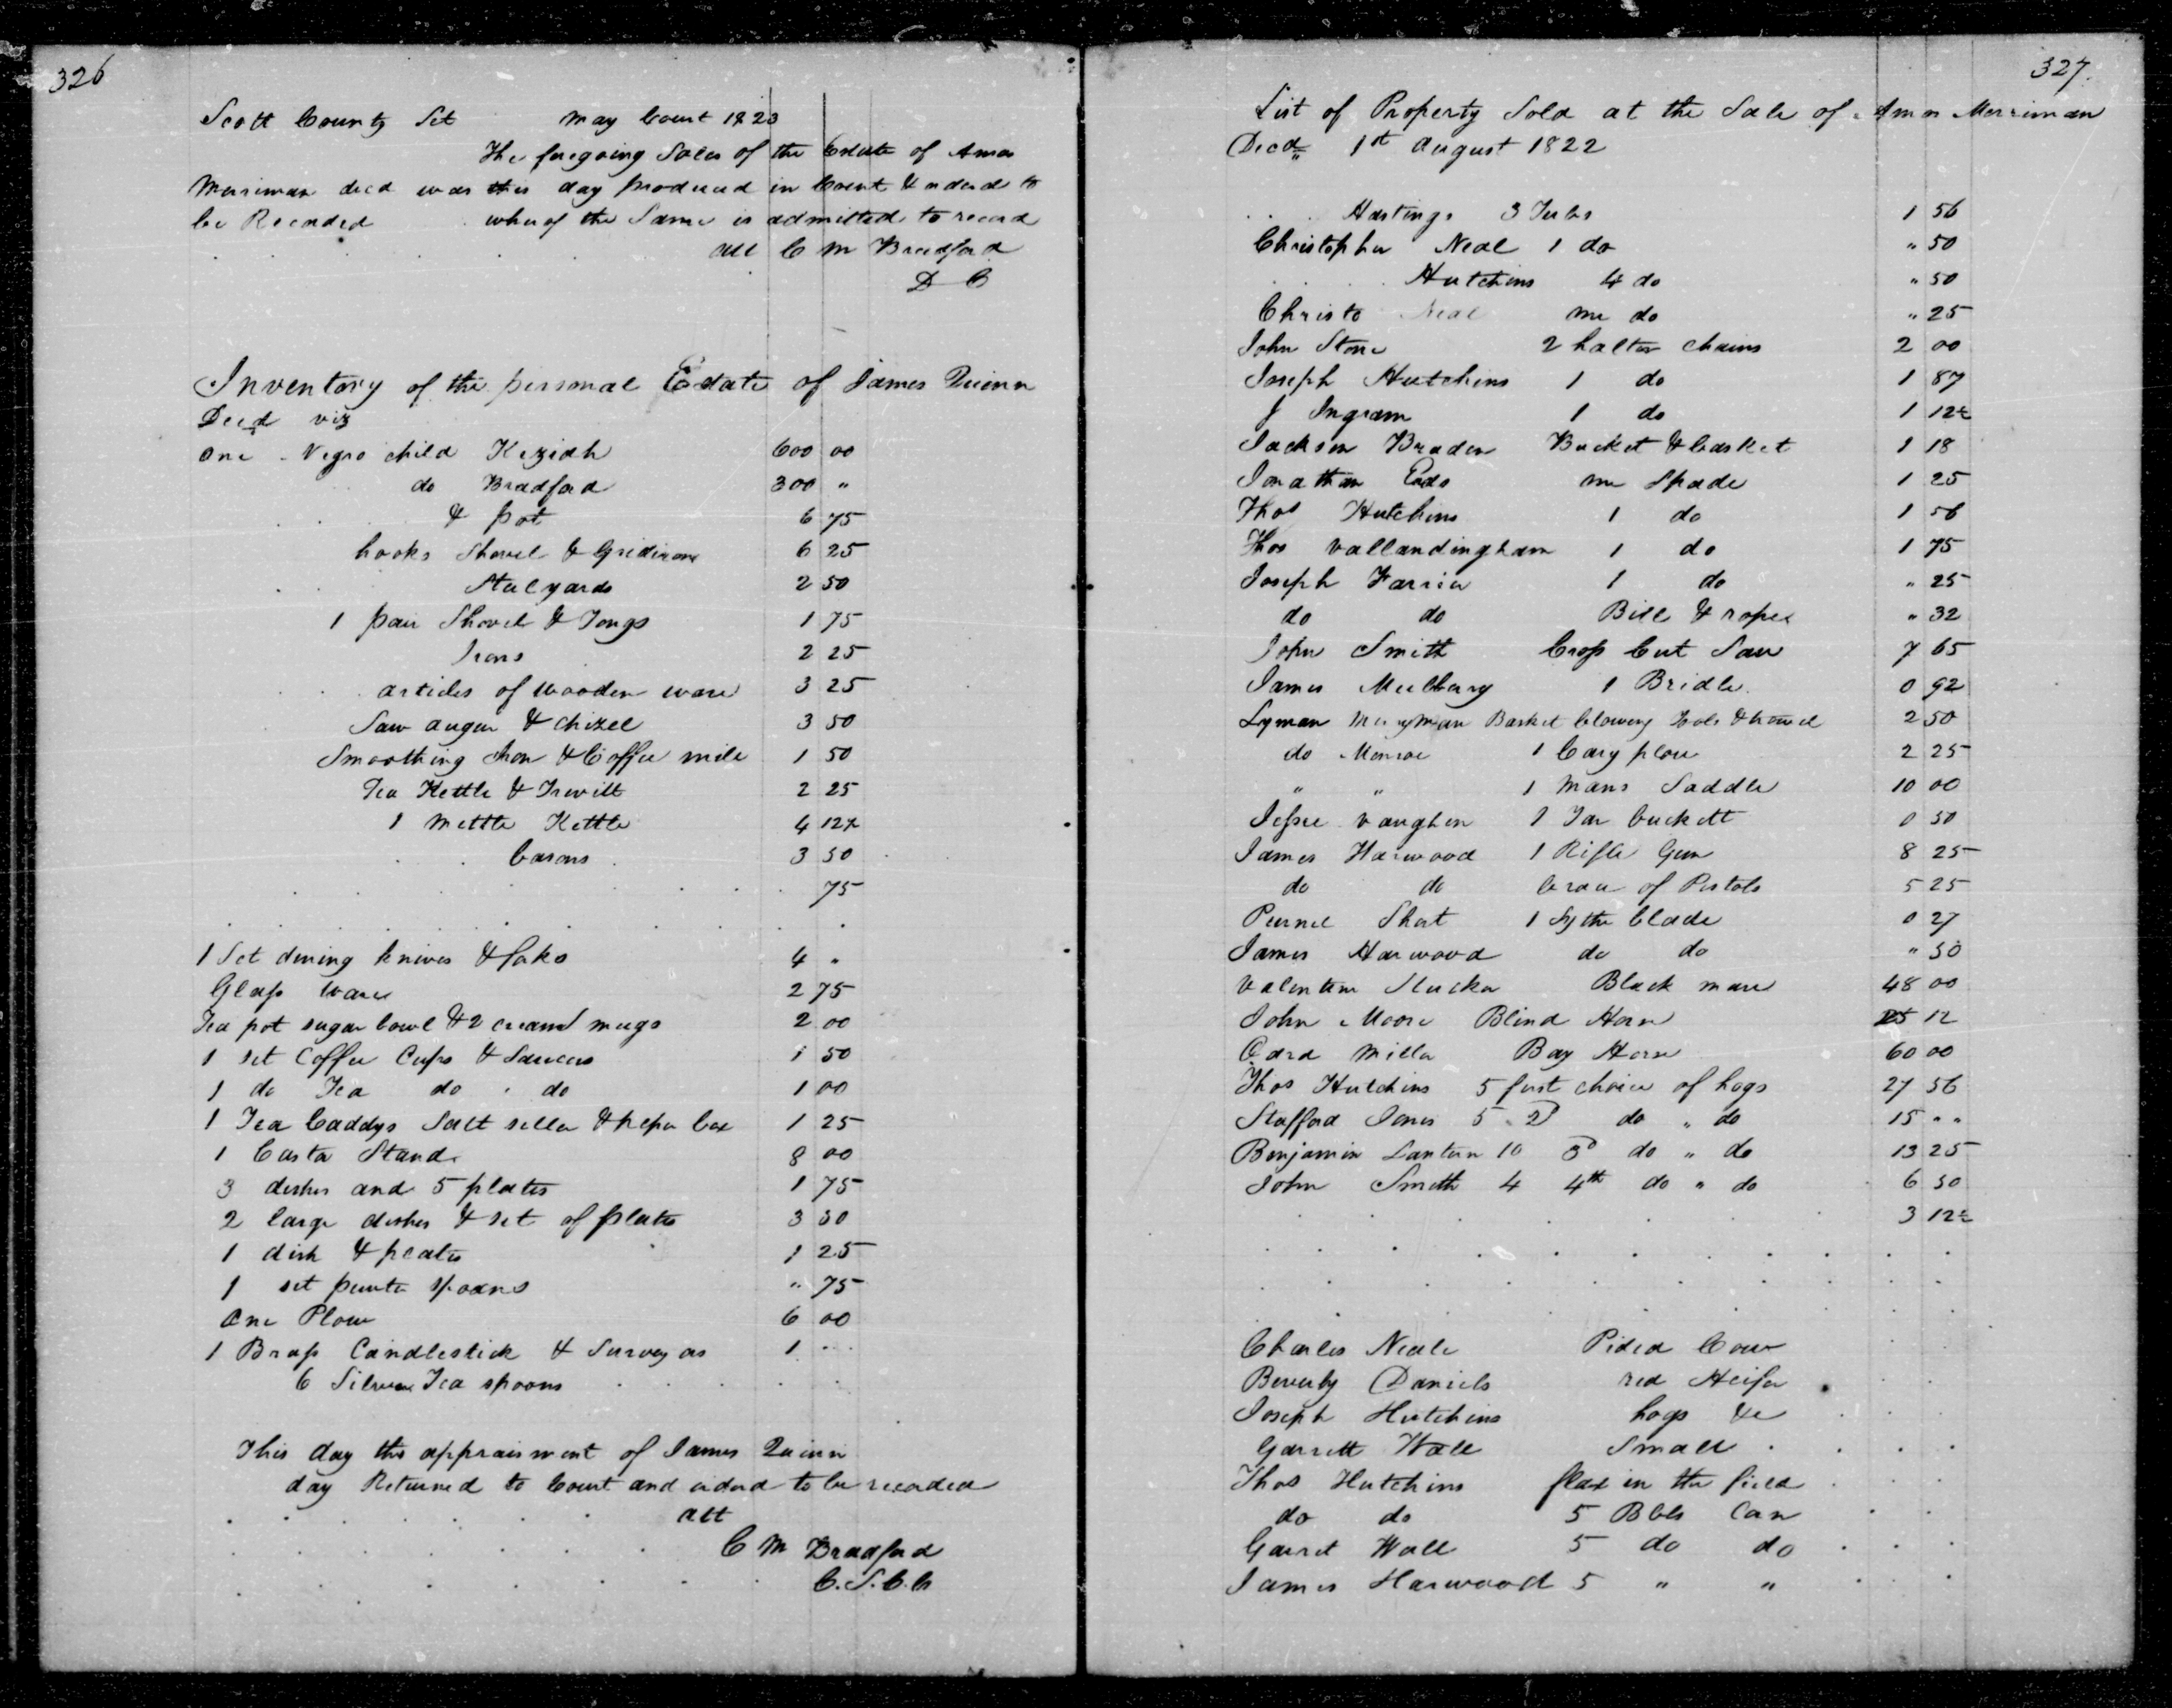 326
Scott County Sct May Court 1823
The foregoing Sales of the Estate of Amos
Merriman decd was this day produced in Court & orderd to
be Recorded whereof the Same is admitted to record
att C M Bradford
D C
Inventory of the personal Estate of James Quinn
Decd viz
One Negro child Keziah 600 00
do Bradford 300 "
& pot 6 75
hooks Shovel & Gridiron 6 25
Stulyards 2 50
1 pair Shovel & Tongs 1 75
Irons 2 25
articles of Wooden ware 3 25
Saw augur & chizel 3 50
Smoothing Iron & Coffee mile 1 50
Tea Kettle & Trevitt 2 25
1 mettle Kettle 4 12½
Casons 3 50
75
1 Set dining knives & forks 4 "
Glass Ware 2 75
Tea pot sugar bowl & 2 cream mugs 2 00
1 set Coffee Cups & Saucers 1 50
1 do Tea do do 1 00
1 Tea Caddys Salt seller & peper box 1 25
1 Castor Stand 8 00
3 dishes and 5 plates 1 75
2 large dishes & set of plates 3 50
1 dish & plates 1 25
1 set pewter spoons " 75
One Plow 6 00
1 Brass Candlestick & 1
6 Silver Tea spoons
This day the appraisment of James Quinn
day Returned to Court and orderd to be recorded
att
C M Bradford
C.S.C.C
327
List of Property Sold at the Sale of Amos Merriman
Decd 1st August 1822
Hastings 3 Tubs 1 56
Christopher Neal 1 do " 50
Hutchins 4 do " 50
Christo Neal one do " 25
John Stone 2 halter chains 2 00
Joseph Hutchins 1 do 1 87
J Ingram 1 do 1 12½
Jackson Braden Bucket & basket 1 18
Jonathan Eads one Spade 1 25
Thos Hutchins 1 do 1 56
Thos Vallandingham 1 do 1 75
Joseph Farrier 1 do " 25
do do Bell & ropes " 32
John Smith Cross Cut Saw 7 65
James Mulberry 1 Bridle 0 92
Lyman Merryman Basket & howel 2 50
do Monroe 1 Cary plow 2 25
" " 1 mans Saddle 10 00
Jessee Vaughen 1 Tar buckett 0 50
James Harwood 1 Rifle Gun 8 25
do do brace of Pistols 5 25
Purnel Shat 1 Sythe blade 0 27
James Harwood do do " 50
Valentine Stucker Black mare 48 00
John Moore Blind Horse 25 12
Miller Bay Horse 60 00
Thos Hutchins 5 first choice of hogs 27 56
Stafford Jones 5 2d do " do 15 " "
Benjamin Lantern 10 3d do " do 13 25
John Smith 4 4th do " do 6 50
3 12½
Charles Neale Pided Cow
Beverly Daniels red Heifer
Joseph Hutchins hogs &c
Garrett Wall Small
Thos Hutchins flax in the field
do do 5 Bbls Corn
Garret Wall 5 do do
James Harwood 5 " "